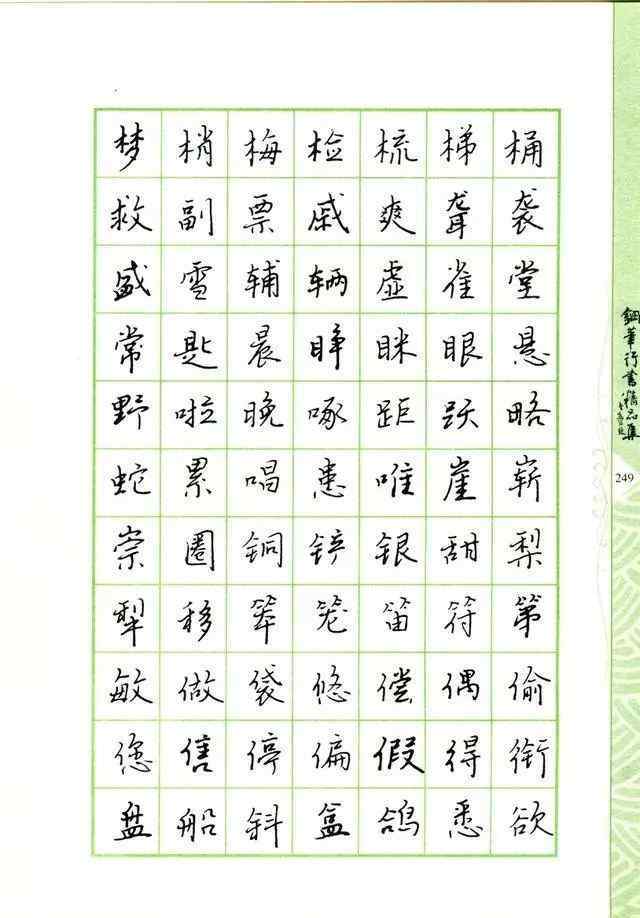 梦梢梅检梳梯桶
救副票戚爽聋袭
盛雪辅辆虚雀堂
常匙晨睁眯眼悬
野啦晚啄距跃略
蛇累唱患唯崖崭
崇圈铜铲银甜梨
犁移笨笼笛符第
敏做袋悠偿偶偷
您售停偏假得衔
盘船斜盒鸽悉欲
鋼筆行書精品集
249